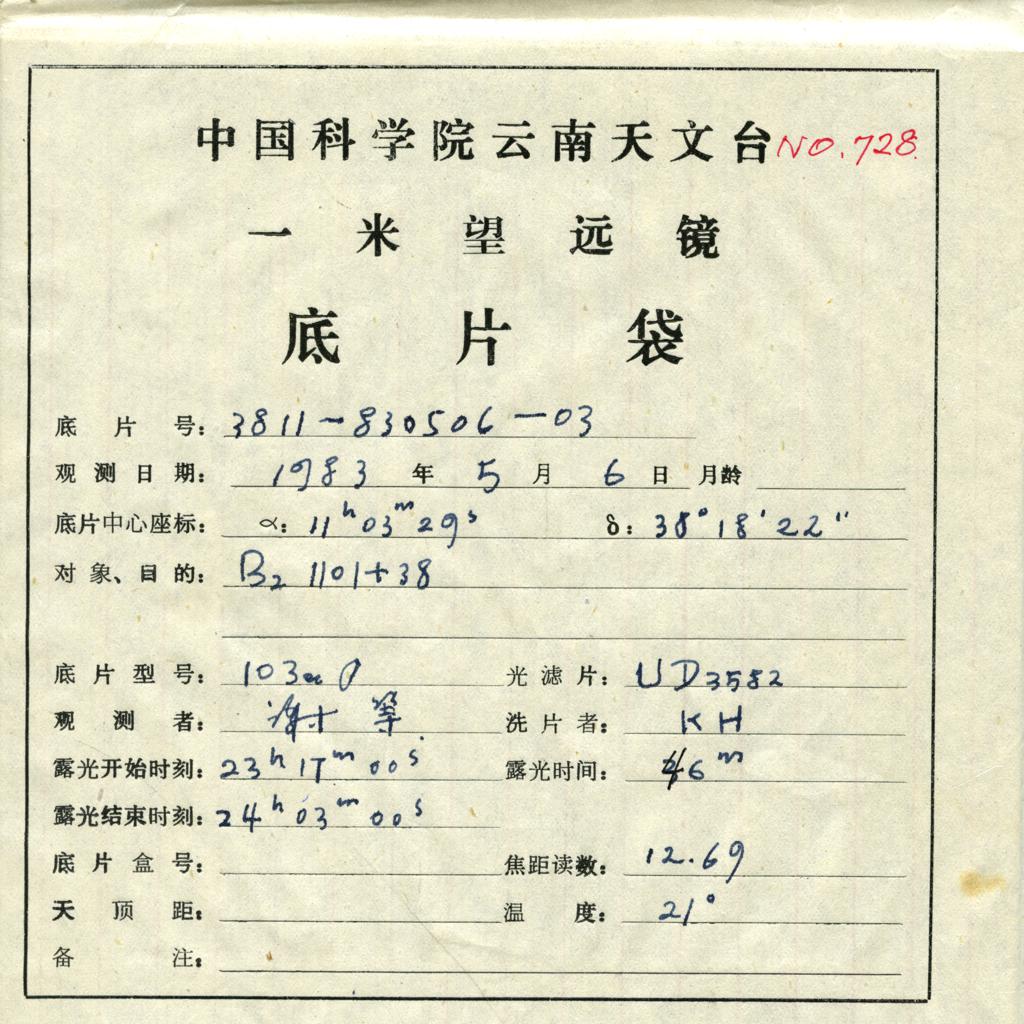 中国科学院云南天文台 NO.728
一米望远镜
底片袋
底片号: 3811-830506-03
观测日期: 1983年5月6日 月龄
底片中心座标: α: 11h 03m 29s δ: 38° 18' 22"
对象、目的: B2 1101+38
底片型号: 103aO 光滤片: UD3582
观测者: 等 洗片者: KH
露光开始时刻: 23h 17m 00s 露光时间: 46m
露光结束时刻: 24h 03m 00s
底片盒号: 焦距读数: 12.69
天顶距: 温度: 21°
备注: